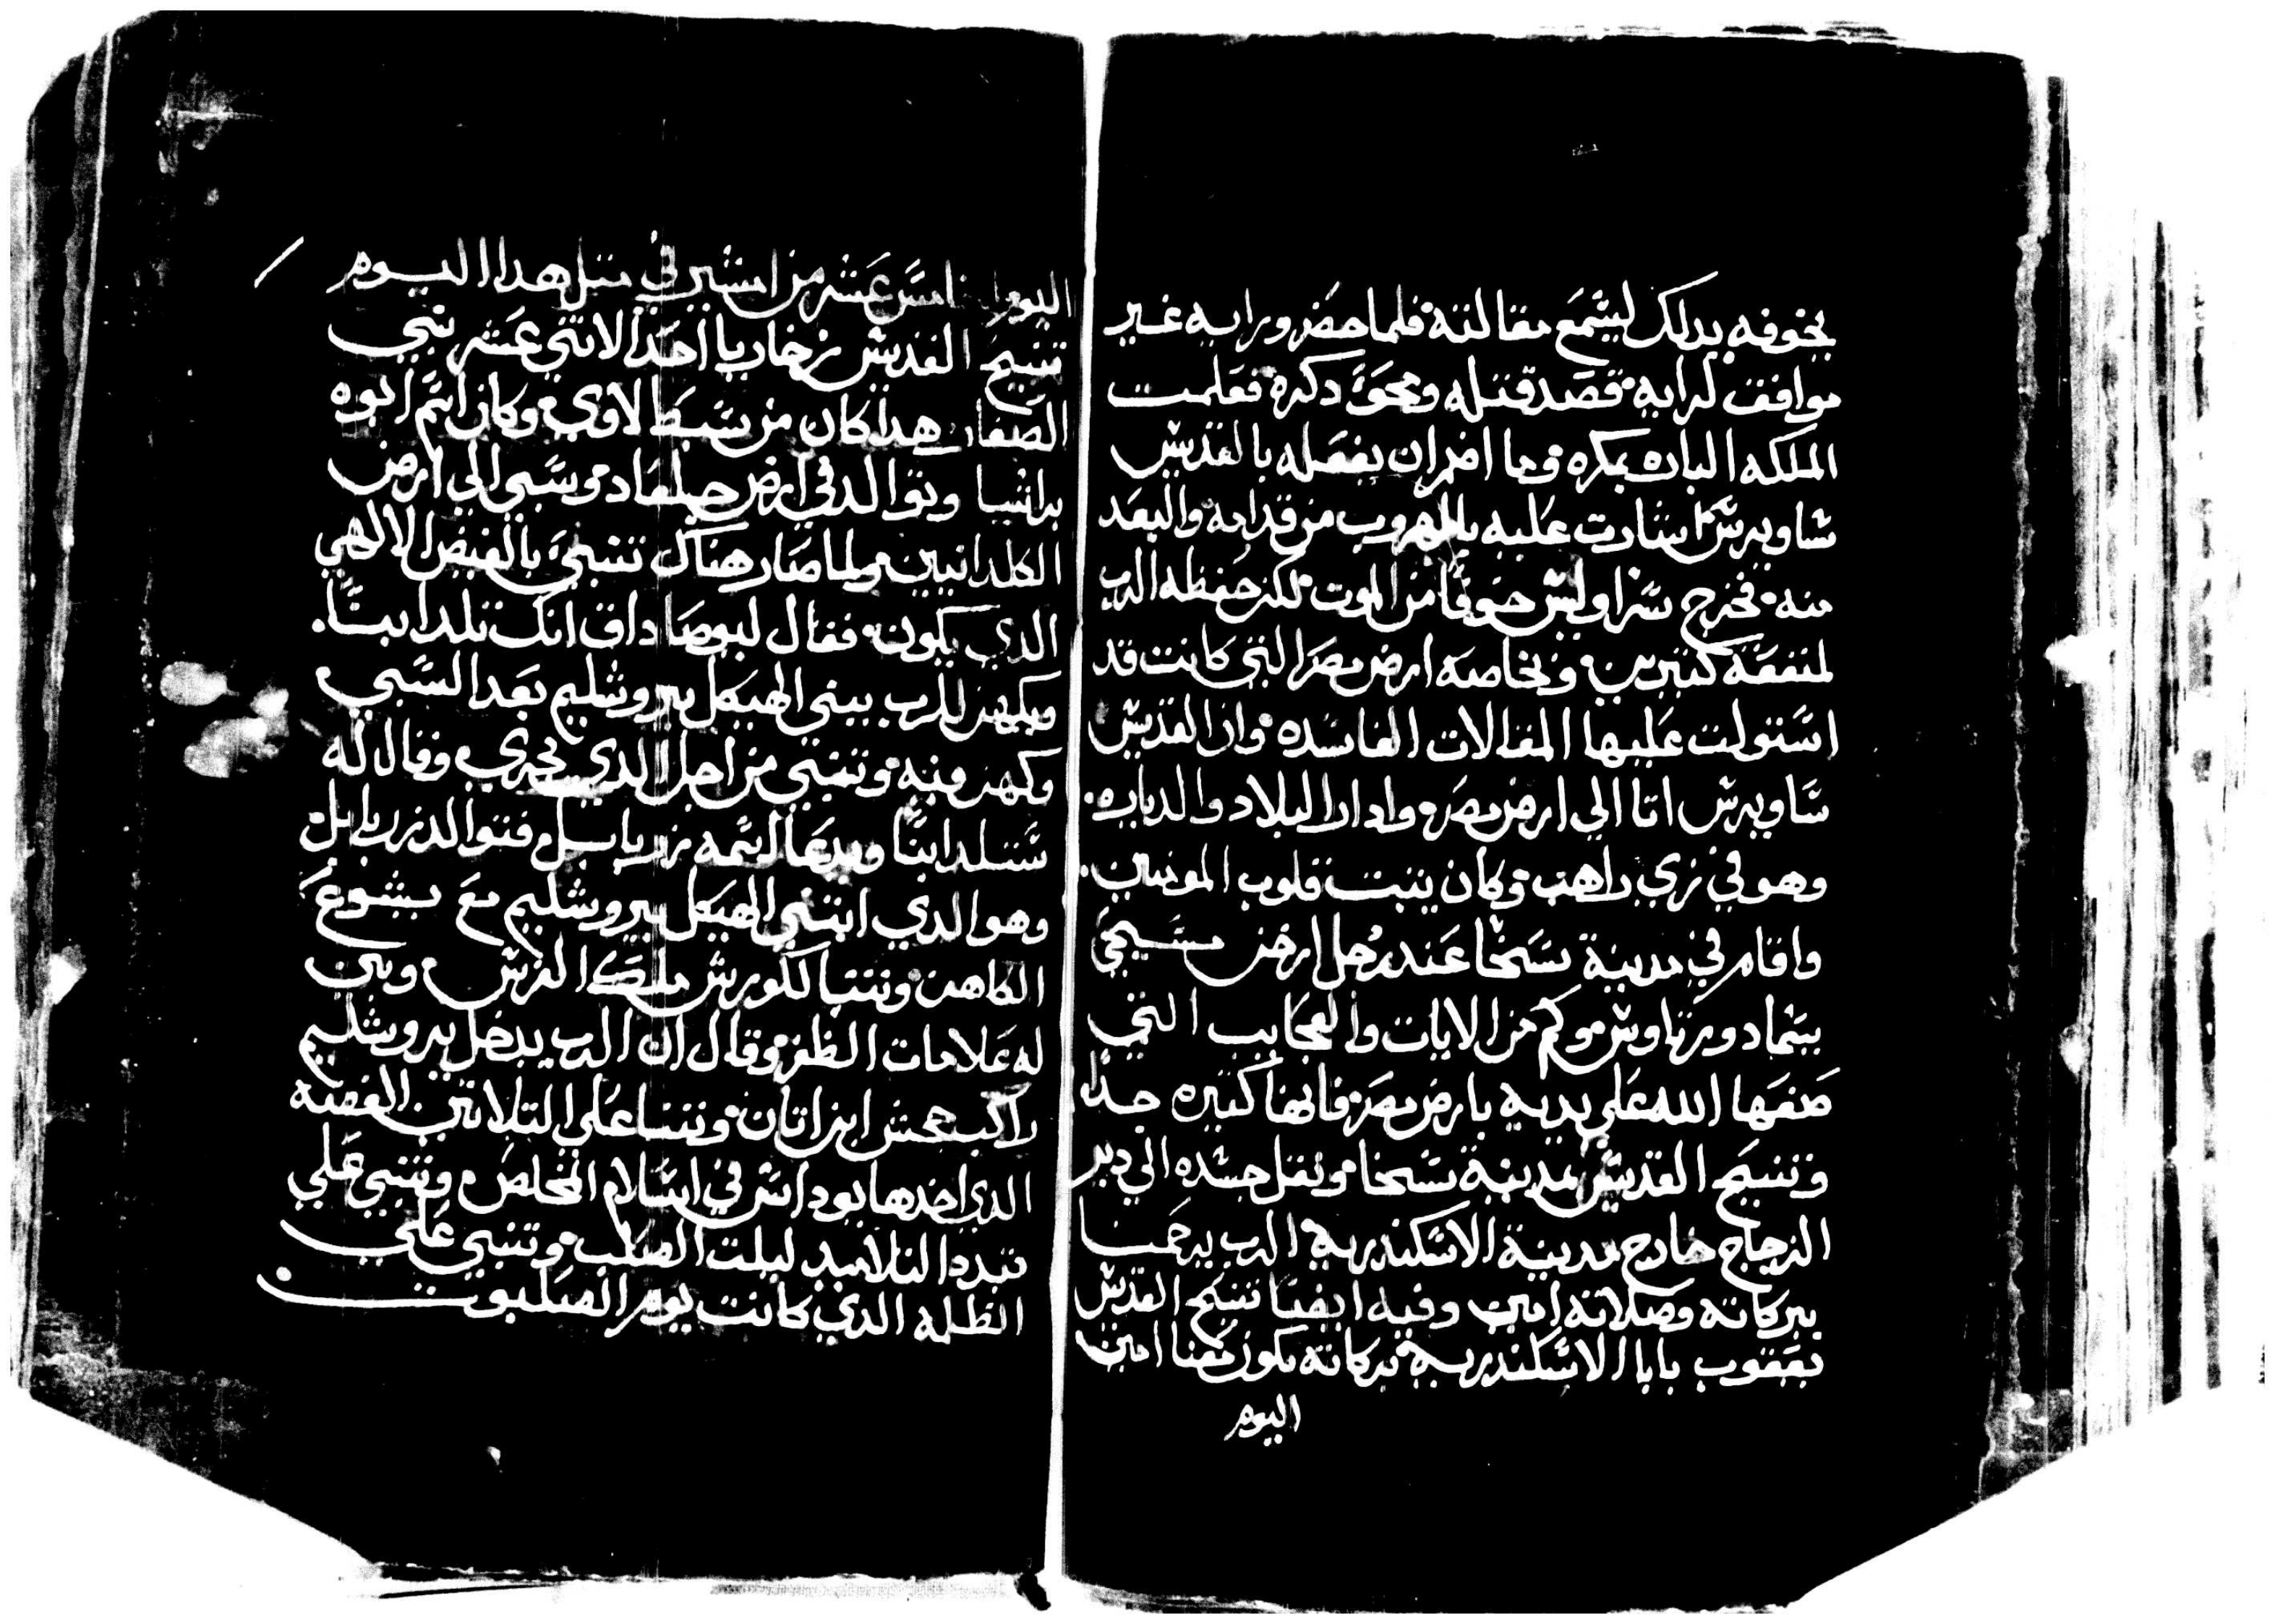 بخوفه بدلك ليسمع مقالته فلما حضر ورايه غير
موافقت لرايه قصد قتله ومحو دكره فعلمت
الملكه الباره بمكره وما اضمر ان يفعله بالقديس
ساويرس اشارت عليه بالهروب من قدامه والبعد
منه فخرج خوفا من الموت لكن حفظه الرب
لمنفعة كتيرين وبخاصه ارض مصر التي كانت قد
استولت عليها المقالات الفاسده وان القديس
ساويرس اتا الي ارض مصر وادار البلاد والدياره
وهو في زي راهب وكان يتبت قلوب المومنين
واقام في مدينة سخا عند رجل ارخن مسيحي
يسما دورتاوس وكم من الايات والعجايب التي
صنعها الله علي يديه بارض مصر فانها كتيره جدا
وتنيح القديس بمدينة سخا ونقل جسده الي دير
الزجاج خارج مدينة الاسكندريه الرب يرحمنا
ببركاته وصلاته امين وفيه ايضا تنيح القديس
يعقوب بابا الاسكندريه بركاته تكون معنا امين
اليوم
اليوم الخامس عشر من امشير في متل هدا اليوم
تنيح القديس زخاريا احد الاتني عشر نبي
الصغار هدا كان من سبط لاوي وكان اسم ابوه
براشيا وتوالد في ارض جلعاد وسبي الي ارض
الكلدانيين ولما صار هناك تنبي بالفيض الالهي
الدي يكون فقال ليوصاداق انك تلد ابنا
ويكهن للرب ويبني الهيكل بيروشليم بعد السبي
وكهن فيه وتنبي من اجل الدي يجري وقال له
ستلد ابنا ويدعا اسمه زربابل فتوالد زربابل
وهو الدي ابتني الهيكل بيروشليم مع يشوع
الكاهن وتنبا لكورش ملك الفرس وبين
له علامات الظفر وقال ان الرب يدخل يروشليم
راكب جحش ابن اتان وتنبا علي التلاتين الفضه
الدي اخدها يوداس في اسلام المخلص وتنبي علي
تبدد التلاميد ليلت الصلب وتنبي علي
الظلمه الدي كانت يوم الصلبوت